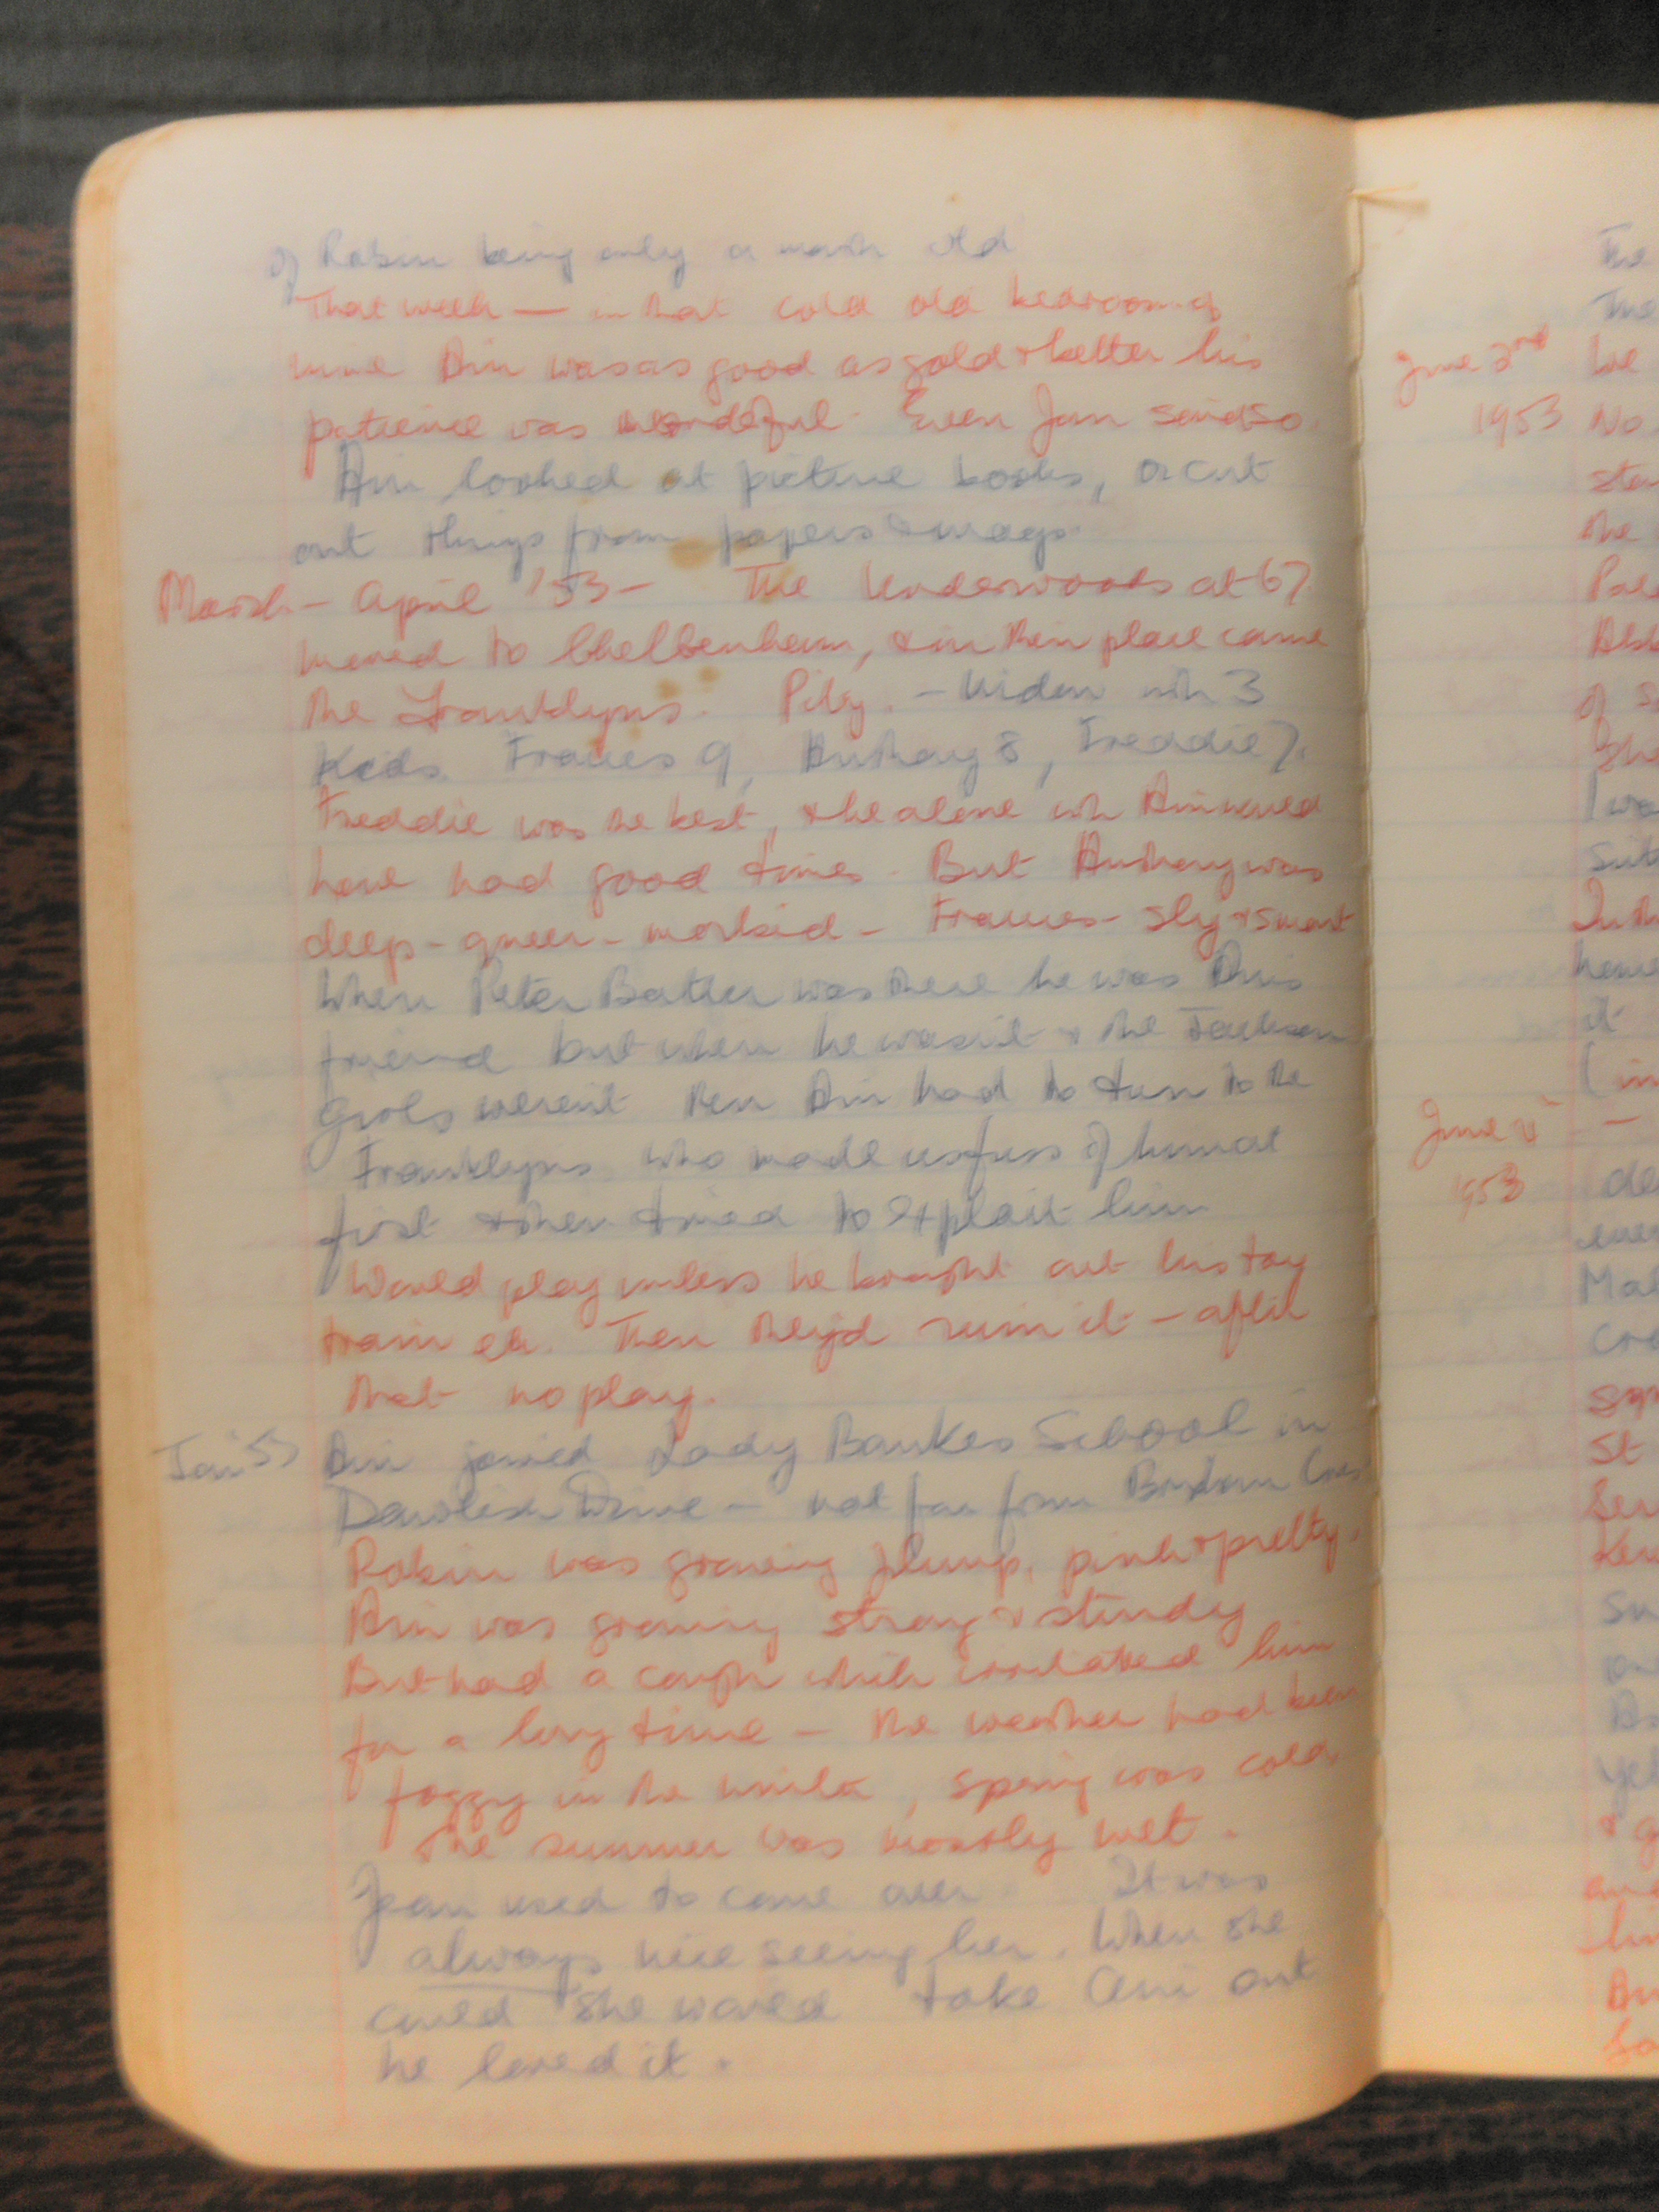 of Robin being only a month old
That week — in that cold old bedroom of
mine Ain was as good as gold & better his
patience was wonderful. Even Jan said so.
Ain looked at picture books, or cut
out things from papers & mags.
March - April '53 - The Underwoods at 67
moved to Cheltenham, & in their place came
the Franklyns. Pity. - Widow with 3
Kids. Frances 9, Anthony 8, Freddie 7.
Freddie was the best, & he alone with Ain would
have had good times. But Anthony was
deep - queer - morbid - Frances - sly & smart
When Peter Batten was there he was Ain's
friend but when he wasn't & the Jackson
Girls weren't then Ain had to turn to the
Franklyns who made a fuss of him at
first & then tried to exploit him
Would play unless he brought out his toy
train etc. Then they'd ruin it - after
that no play.
Jan 53 Ain joined Lady Bankes School in
Dawlish Drive - not far from Brixham Cres
Robin was growing plump, pink & pretty.
Ain was growing strong & sturdy
But had a cough which irritated him
for a long time - the weather had been
foggy in the winter, spring was cold,
the summer was mostly wet.
Jean used to come over. It was
always nice seeing her. When she
could she would take Ain out
he loved it.
The
The
June 3rd
1953 No
the
June 4
1953
St